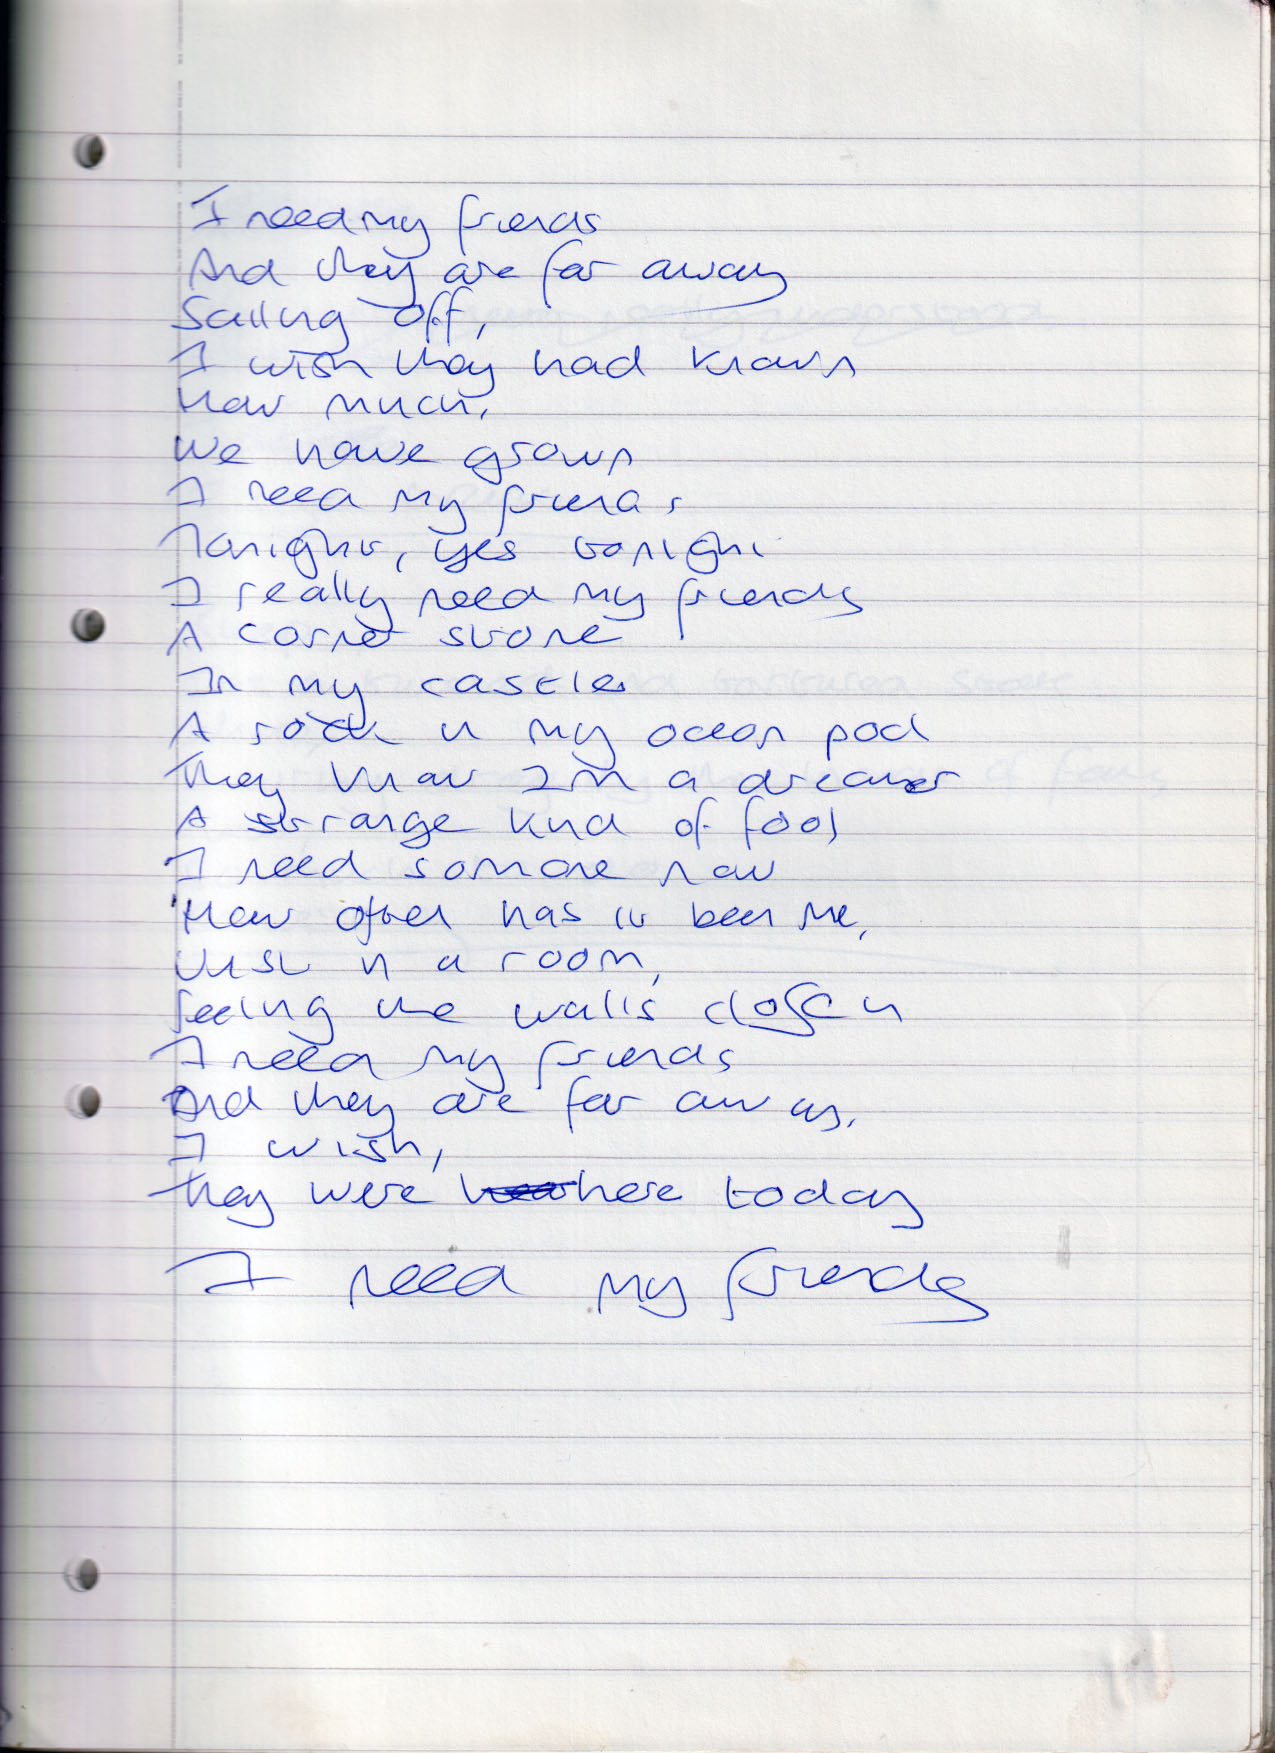 I need my friends
And they are far away
Sailing off,
I wish they had known
How much,
We have grown
I need my friends
Tonight, yes tonight
I really need my friends
A corner stone
In my castle
A rock in my ocean pool
They know I'm a dreamer
A strange kind of fool
I need someone now
How often has it been me,
Just in a room,
feeling the walls close in
I need my friends
And they are far away,
I wish,
They were here today
I need my friends